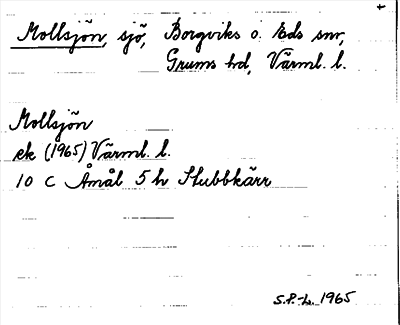 Mollsjön, sjö, Borgviks o. Eds snr,
Grums hd, Värml. l.
Mollsjön
ek (1965) Värml. l.
10 C Åmål 5 h Stubbkärr
S.P.-L. 1965